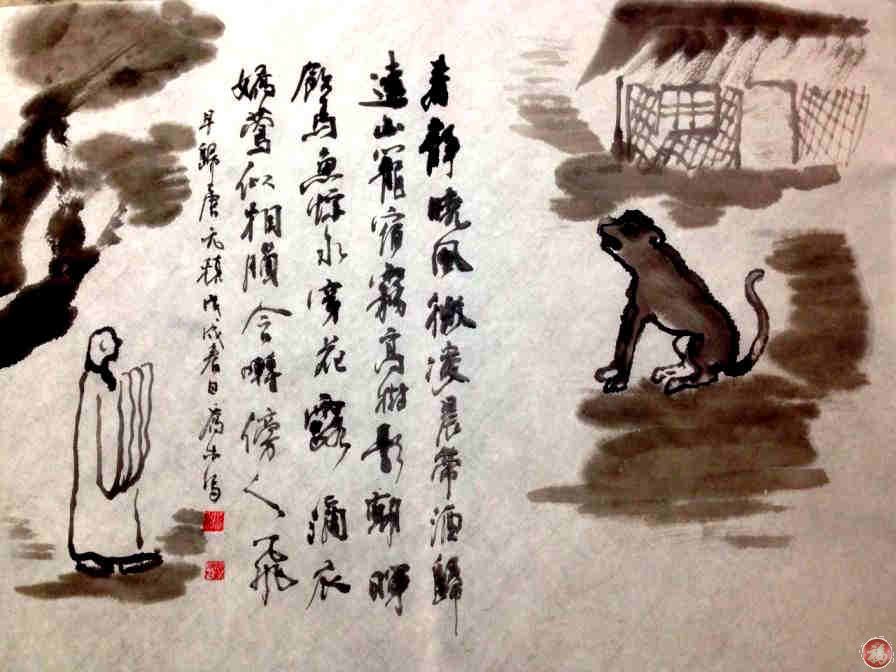 春靜曉風微凌晨帶酒歸
遠山籠宿霧高樹影朝暉
飲馬魚惊水穿花露滴衣
嬌鶯似相惱含囀傍人飛
早歸唐元稹戊戌春日
福